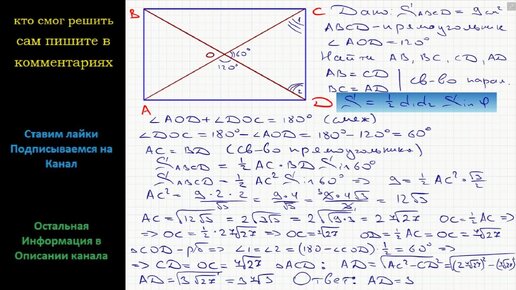 кто смог решить
сам пишите в
комментариях
Ставим лайки
Подписываемся на
Канал
Остальная
Информация в
Описании канала
B
C
O
60°
120°
1
2
A
D
Дано S ABCD = 9 см²
ABCD - прямоугольник
∠AOD = 120°
Найти AB, BC, CD, AD
AB = CD | св-во парал.
BC = AD
S = 1/2 d₁d₂ Sin φ
∠AOD + ∠DOC = 180° (смеж)
∠DOC = 180° - ∠AOD = 180° - 120° = 60°
AC = BD (св-во прямоугольника)
S ABCD = 1/2 AC · BD Sin 60°
S ABCD = 1/2 AC² Sin 60° ⇒ 9 = 1/2 AC² · √3/2
AC² = 9·2·2/√3 = 9·4/√3 = 12√3
AC = √12√3 = 2√3√3 = 2 ⁴√27 OC = 1/2 AC ⇒
⇒ OC = 1/2 · 2 ⁴√27 ⇒ OC = ⁴√27 OD = 1/2 AC = ⁴√27
△COD - р/б ⇒ ∠1 = ∠2 = (180 - ∠COD) · 1/2 = 60° ⇒
⇒ CD = OC = ⁴√27 △ACD: AD = √AC² - CD² =
AD = Ответ: AD = 3